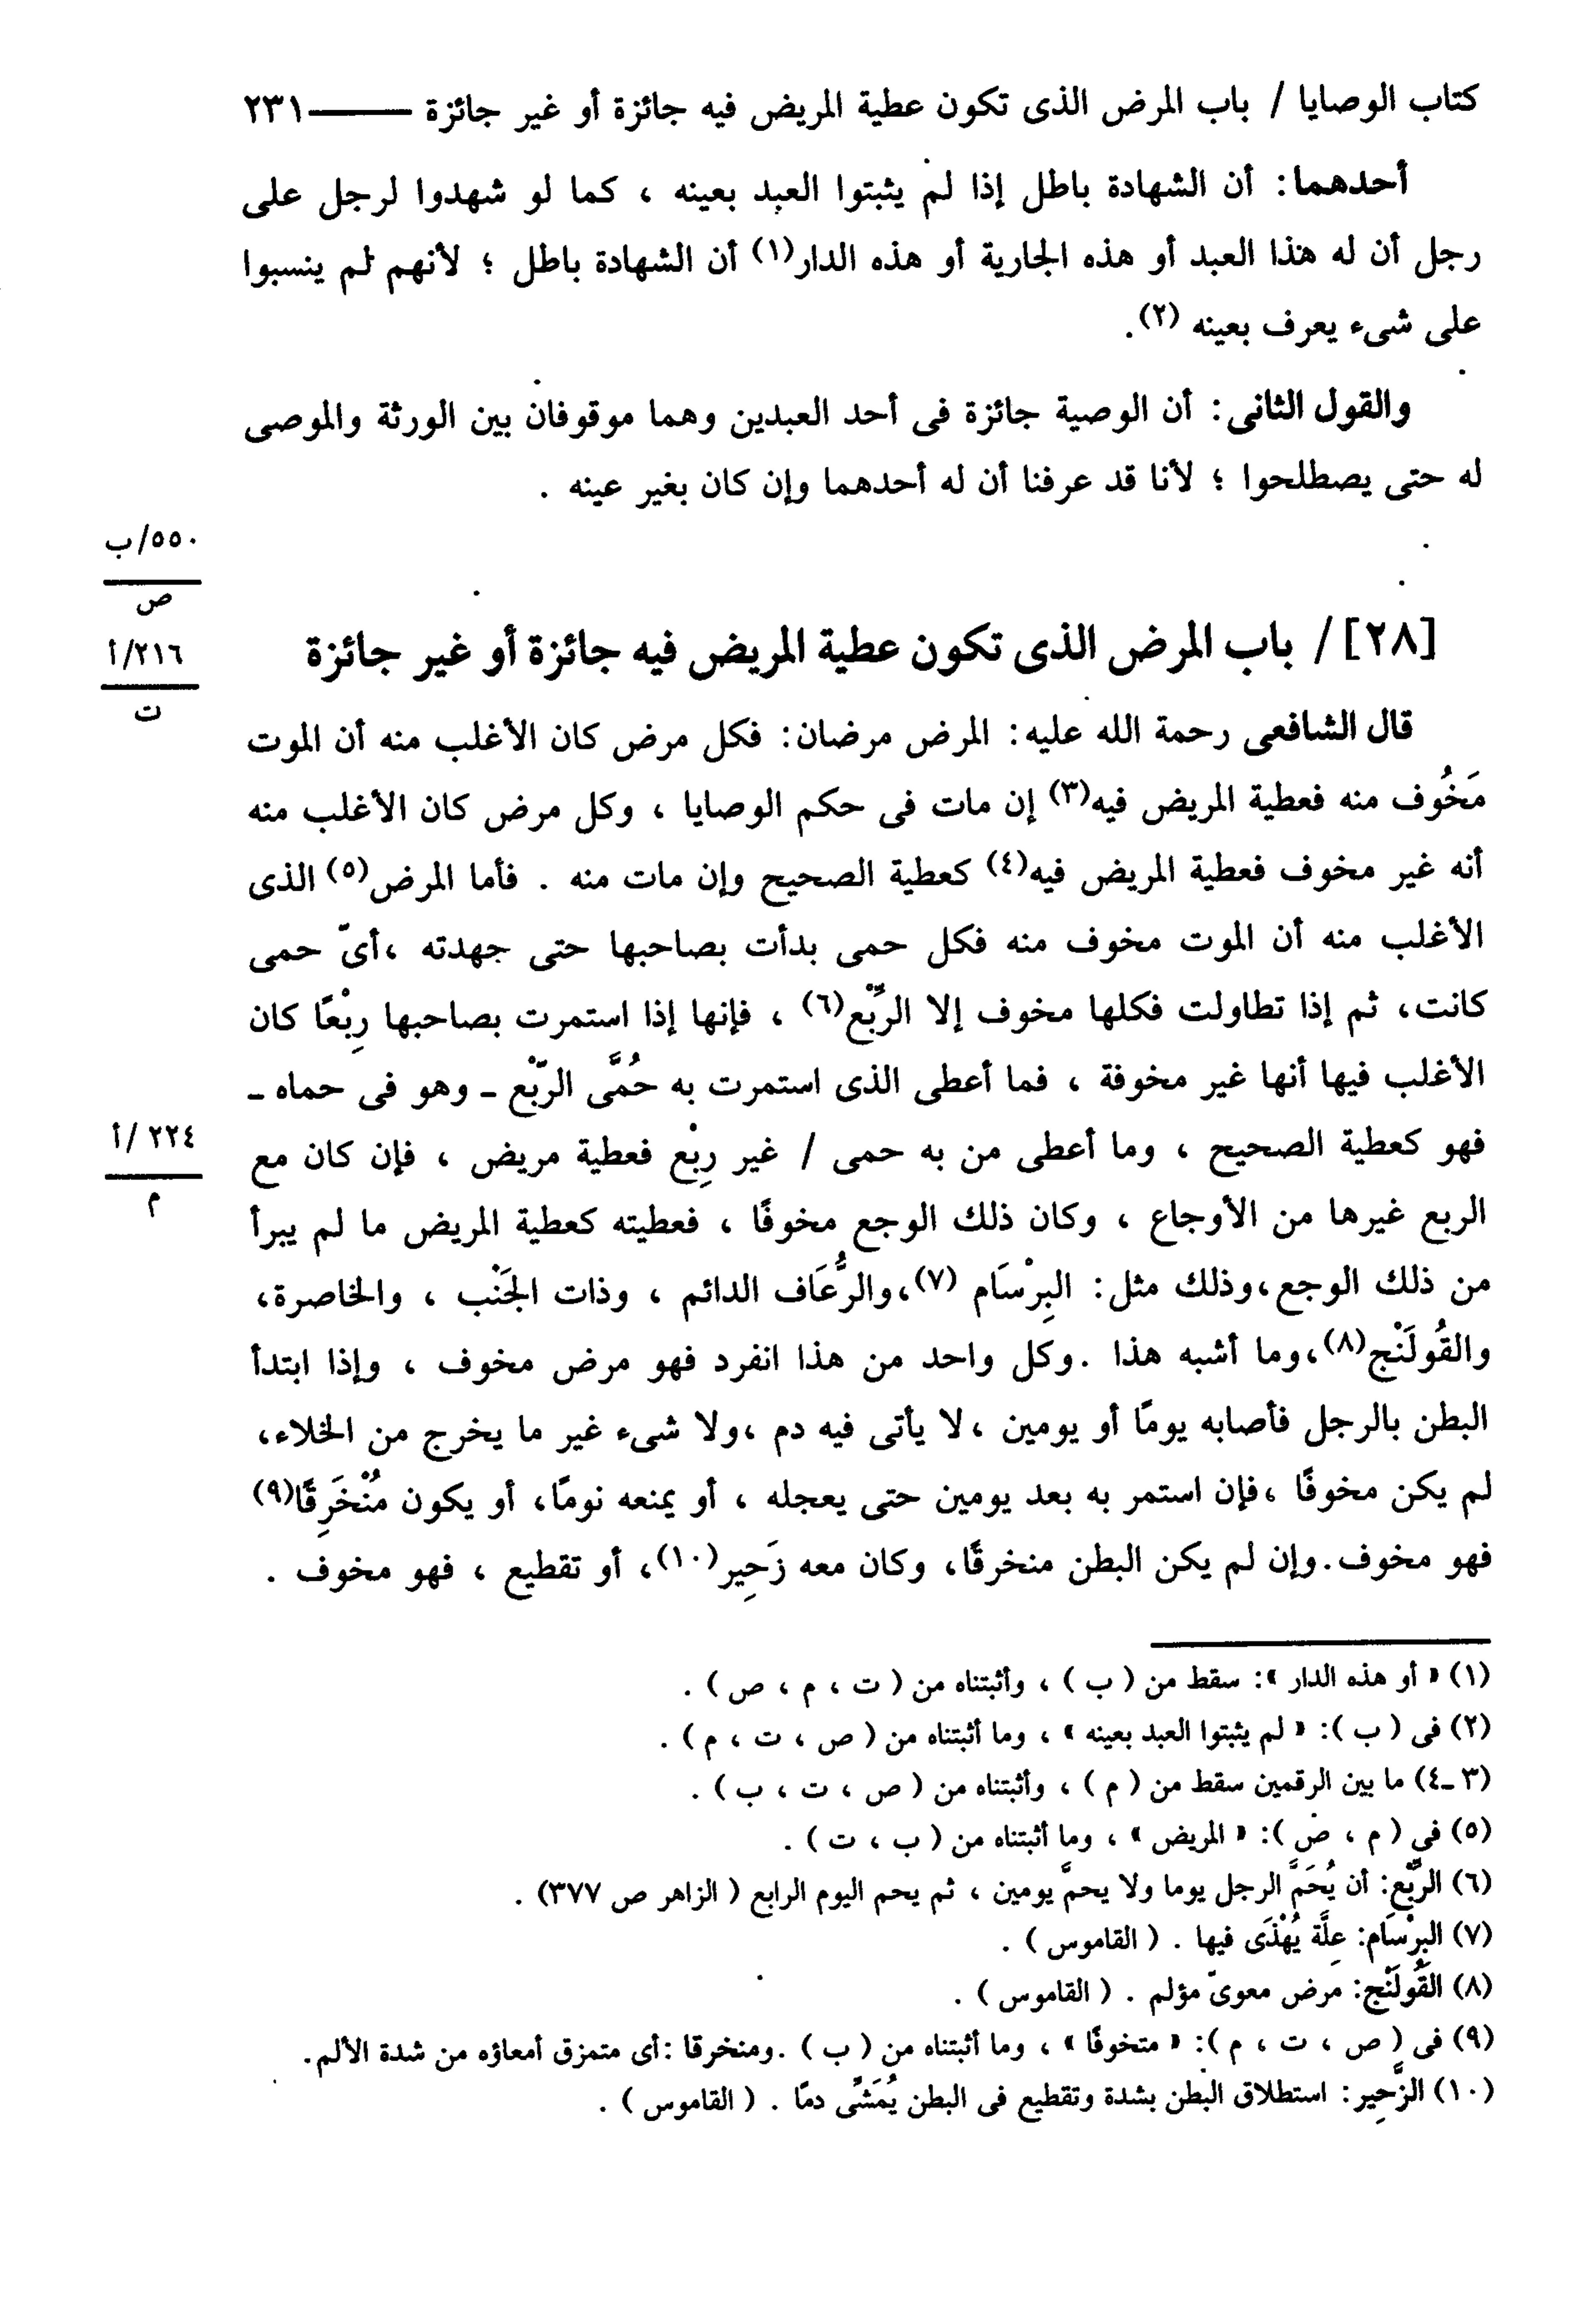 كتاب الوصايا / باب المرض الذى تكون عطية المريض فيه جائزة أو غير جائزة ــــــ ٢٣١
أحدهما: أن الشهادة باطل إذا لم يثبتوا العبد بعينه ، كما لو شهدوا لرجل على
رجل أن له هذا العبد أو هذه الجارية أو هذه الدار(١) أن الشهادة باطل ؛ لأنهم لم ينسبوا
على شىء يعرف بعينه (٢).
والقول الثانى: أن الوصية جائزة فى أحد العبدين وهما موقوفان بين الورثة والموصى
له حتى يصطلحوا ؛ لأنا قد عرفنا أن له أحدهما وإن كان بغير عينه .
٥٥٠/ب
ص
[٢٨] / باب المرض الذى تكون عطية المريض فيه جائزة أو غير جائزة
٢١٦/أ
ت
قال الشافعى رحمة الله عليه: المرض مرضان: فكل مرض كان الأغلب منه أن الموت
مَخُوف منه فعطية المريض فيه(٣) إن مات فى حكم الوصايا ، وكل مرض كان الأغلب منه
أنه غير مخوف فعطية المريض فيه(٤) كعطية الصحيح وإن مات منه . فأما المرض(٥) الذى
الأغلب منه أن الموت مخوف منه فكل حمى بدأت بصاحبها حتى جهدته ،أىّ حمى
كانت، ثم إذا تطاولت فكلها مخوف إلا الرِّبْع(٦) ، فإنها إذا استمرت بصاحبها رِبْعًا كان
الأغلب فيها أنها غير مخوفة ، فما أعطى الذى استمرت به حُمَّى الرِّبْع ـ وهو فى حماه ـ
فهو كعطية الصحيح ، وما أعطى من به حمى / غير رِبْع فعطية مريض ، فإن كان مع
٢٢٤ /أ
م
الربع غيرها من الأوجاع ، وكان ذلك الوجع مخوفًا ، فعطيته كعطية المريض ما لم يبرأ
من ذلك الوجع،وذلك مثل: البِرْسَام (٧)،والرُّعَاف الدائم ، وذات الجَنْب ، والخاصرة،
والقُولَنْج(٨)،وما أشبه هذا .وكل واحد من هذا انفرد فهو مرض مخوف ، وإذا ابتدأ
البطن بالرجل فأصابه يومًا أو يومين ،لا يأتى فيه دم ،ولا شىء غير ما يخرج من الخلاء،
لم يكن مخوفًا ،فإن استمر به بعد يومين حتى يعجله ، أو يمنعه نومًا، أو يكون مُنْخَرِقًا(٩)
فهو مخوف.وإن لم يكن البطن منخرقًا، وكان معه زَحِير(١٠)، أو تقطيع ، فهو مخوف .
(١) « أو هذه الدار »: سقط من ( ب ) ، وأثبتناه من ( ت ، م ، ص ) .
(٢) فى ( ب ): « لم يثبتوا العبد بعينه » ، وما أثبتناه من ( ص ، ت ، م ) .
(٣ ـ٤) ما بين الرقمين سقط من ( م ) ، وأثبتناه من ( ص ، ت ، ب ) .
(٥) فى ( م ، ص ): « المريض » ، وما أثبتناه من ( ب ، ت ) .
(٦) الرِّبْع: أن يُحَمَّ الرجل يوما ولا يحمَّ يومين ، ثم يحم اليوم الرابع ( الزاهر ص ٣٧٧) .
(٧) البِرْسَام: عِلَّة يُهْذَى فيها . ( القاموس ) .
(٨) القُولَنْج: مرض معوىّ مؤلم . ( القاموس ) .
(٩) فى ( ص ، ت ، م ): « متخوفًا » ، وما أثبتناه من ( ب ) .ومنخرقا :أى متمزق أمعاؤه من شدة الألم.
(١٠) الزَّحِير: استطلاق البطن بشدة وتقطيع فى البطن يُمَشِّى دمًا . ( القاموس ) .